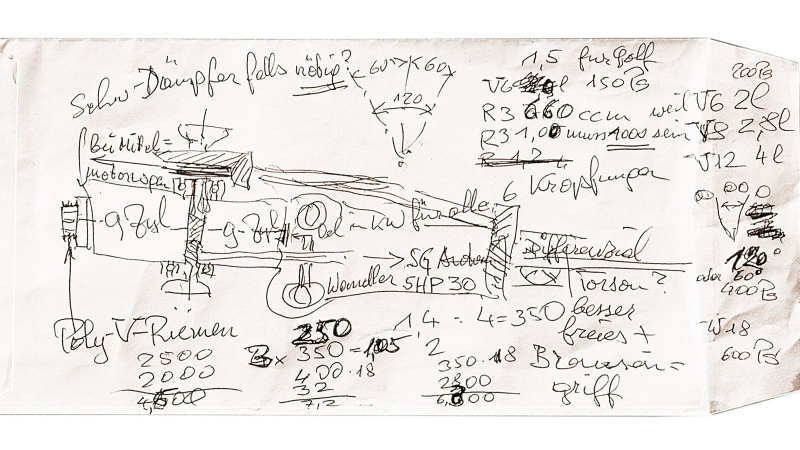 Schw-Dämpfer falls nötig?
60° 60°
120
1,5 für Golf
V6 150 PS
R3 660 ccm weil V6 2l
R3 1,00 muss 1000 sein V8 2,8l
R 1,2
V12 4l
200 PS
6 Kröpfungen
Bei Mittel=
motorwagen
9 Zyl
9-Zyl
Oel in KW für alle
SG
Wandler 5HP30
Differenzial
Torsen?
120°
oder 60°
400 PS
W18
600 PS
Poly-V-Riemen
2500
2000
4,500
250
350 = 1,05
400 · 18
32
7,2
14 : 4 = 350 besser
freies +
2
350 · 18
2800
6,300
Bronson=
griff